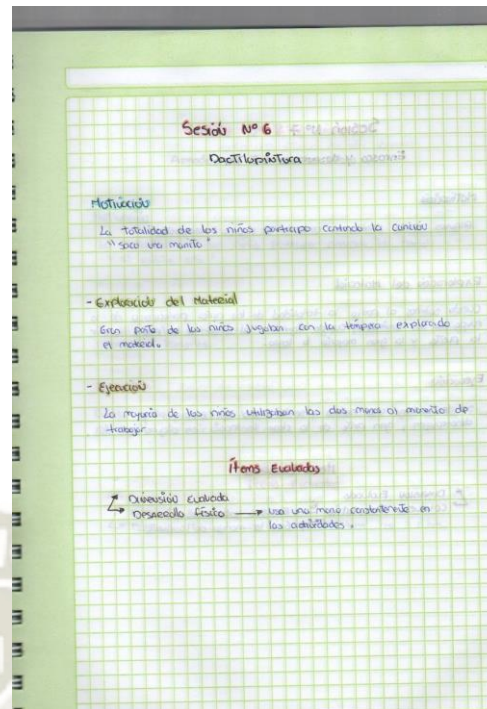 Sesión Nº 6
Dactilopintura
Motivación
La totalidad de los niños participo cantando la canción
"saco una manito"
- Exploración del Material
Gran parte de los niños jugaban con la témpera explorando
el material.
- Ejecución
La mayoría de los niños utilizaban las dos manos al momento de
trabajar
Ítems Evaluados
Dimensión evaluada
Desarrollo físico → usa una mano constantemente en
las actividades.